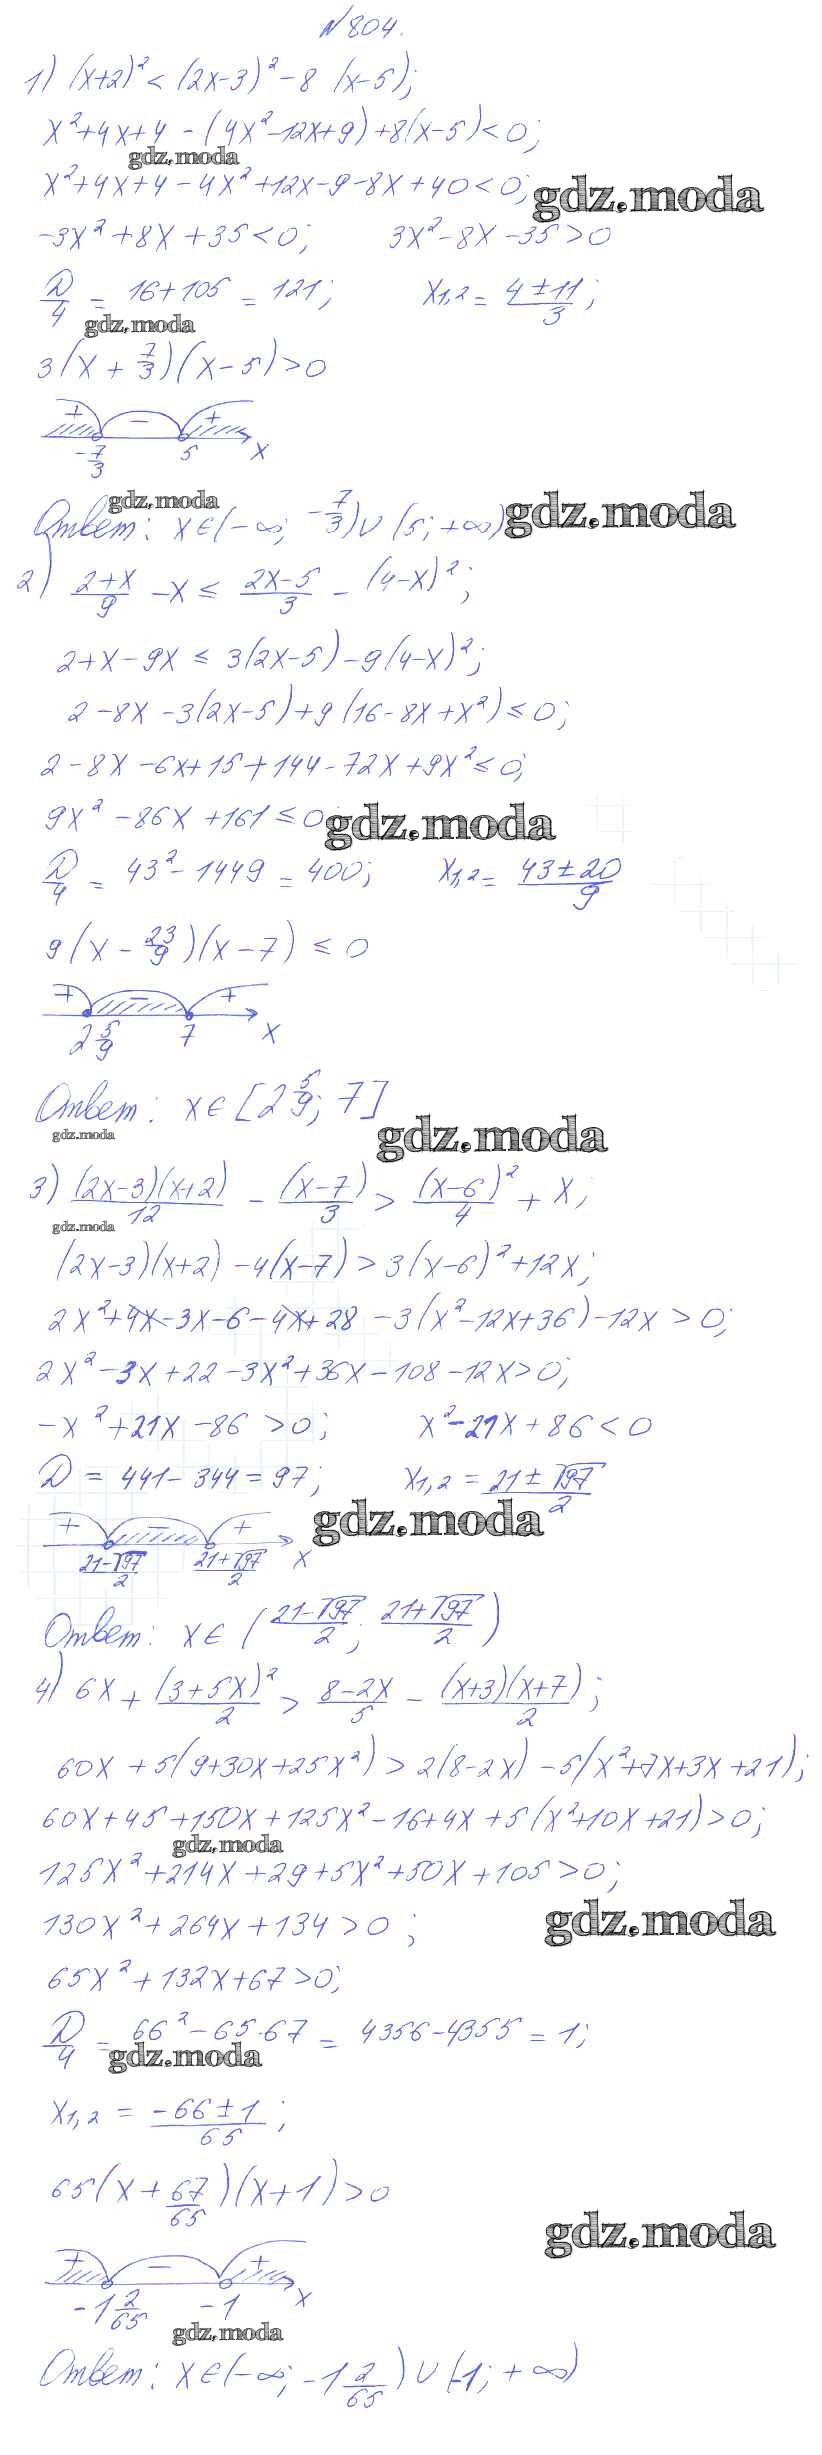 №804.
1) (x+2)² < (2x-3)² - 8 (x-5);
x²+4x+4 - (4x²-12x+9)+8(x-5)<0;
gdz.moda
x²+4x+4-4x²+12x-9-8x+40<0;
gdz.moda
-3x²+8x+35<0; 3x²-8x-35>0
D/4 = 16+105 = 121; x1,2 = (4±11)/3;
gdz.moda
3(x + 7/3)(x-5)>0
+ - +
-7/3 5 x
gdz.moda
Ответ: x∈(-∞; -7/3)∪(5; +∞)
gdz.moda
2) (2+x)/9 - x ≤ (2x-5)/3 - (4-x)²;
2+x-9x ≤ 3(2x-5)-9(4-x)²;
2-8x-3(2x-5)+9(16-8x+x²)≤0;
2-8x-6x+15+144-72x+9x²≤0;
9x²-86x+161≤0
gdz.moda
D/4 = 43²-1449 = 400; x1,2 = (43±20)/9
9(x - 23/9)(x-7) ≤ 0
+ - +
2 5/9 7 x
Ответ: x∈[2 5/9; 7]
gdz.moda
gdz.moda
3) (2x-3)(x+2)/12 - (x-7)/3 > (x-6)²/4 + x;
gdz.moda
(2x-3)(x+2)-4(x-7)>3(x-6)²+12x;
2x²+4x-3x-6-4x+28-3(x²-12x+36)-12x>0;
2x²-3x+22-3x²+36x-108-12x>0;
-x²+21x-86>0; x²-21x+86<0
D = 441-344=97; x1,2 = (21±√97)/2
gdz.moda
+ - +
(21-√97)/2 (21+√97)/2 x
Ответ: x∈((21-√97)/2; (21+√97)/2)
4) 6x + (3+5x)²/2 > (8-2x)/5 - (x+3)(x+7)/2;
60x+5(9+30x+25x²)>2(8-2x)-5(x²+7x+3x+21);
60x+45+150x+125x²-16+4x+5(x²+10x+21)>0;
gdz.moda
125x²+214x+29+5x²+50x+105>0;
130x²+264x+134>0;
gdz.moda
65x²+132x+67>0;
D/4 = 66²-65·67 = 4356-4355=1;
gdz.moda
x1,2 = (-66±1)/65;
65(x+67/65)(x+1)>0
gdz.moda
+ - +
-1 2/65 -1 x
gdz.moda
Ответ: x∈(-∞; -1 2/65)∪(-1; +∞)